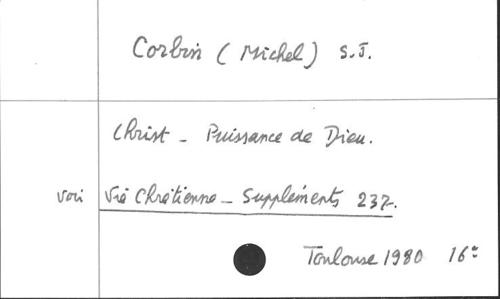 Corbin (Michel) S.J.
Christ - Puissance de Dieu.
voir Vie Chrétienne - Suppléments 237.
Toulouse 1980 16°